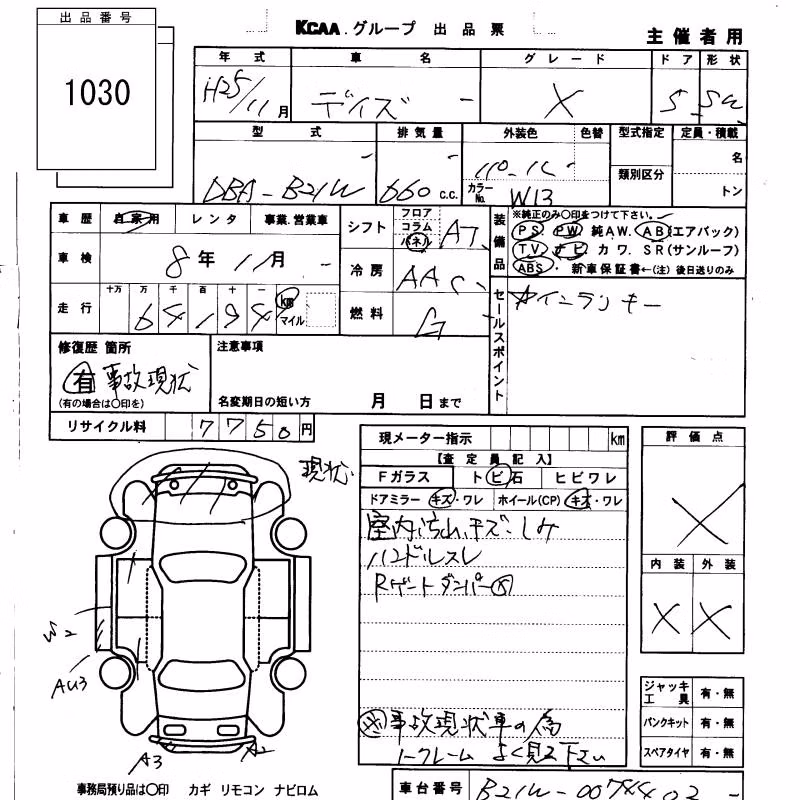 出品番号
1030
KCAA.グループ 出品票
主催者用
年式 車名 グレード ドア 形状
H25/11月 デイズ - X 5 SW
型式 排気量 外装色 色替 型式指定 定員・積載
名
類別区分
トン
DBA-B21W 660 c.c. カラーNo. W13
車歴 自家用 レンタ 事業.営業車
シフト フロア コラム パネル AT
装備品 ※純正のみ〇印をつけて下さい。
PS PW 純AW. AB(エアバック)
TV ナビ カワ. SR(サンルーフ)
ABS・新車保証書←(注) 後日送りのみ
車検 8年11月
冷房 AAC
走行 十万 万 千 百 十 一
64194 km マイル
燃料 G
セールスポイント ☆インテリキー
修復歴 箇所
有 事故現状
(有の場合は〇印を)
注意事項
名変期日の短い方 月 日まで
リサイクル料 7750円
現メーター指示 km
評価点
X
【査定員記入】
現状
Fガラス トビ石 ヒビワレ
ドアミラー キズ・ワレ ホイール(CP) キズ・ワレ
室内汚れ.キズ.しみ
ハンドルスレ
Rゲートダンパー
内装 外装
X X
W2
AU3
A3 A2
事故現状車の為
よく見て下さい
ジャッキ工具 有・無
パンクキット 有・無
スペアタイヤ 有・無
事務局預り品は〇印 カギ リモコン ナビロム
車台番号 B21W-